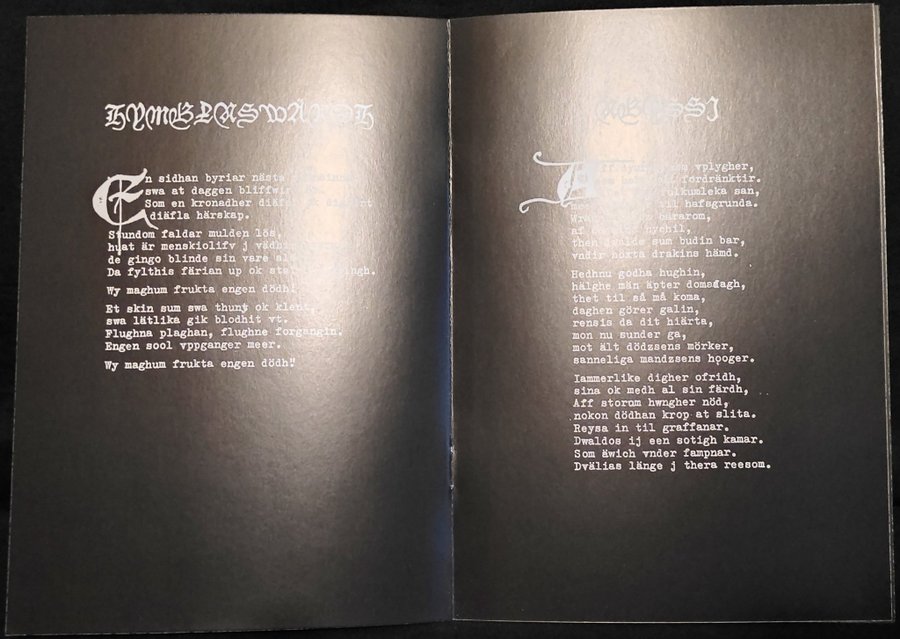 En sidhan byriar nästa
swa at daggen
Som en kronadher
diäfla härskap.
Stundom faldar mulden lös,
huat är menskiolifv j
de gingo blinde sin vare
Da fylthis färian up ok
Wy maghum frukta engen dödh!
Et skin sum swa thunt ok klent,
swa lätlika gik blodhit vt.
Flughna plaghan, flughne forgangin.
Engen sool vppganger meer.
Wy maghum frukta engen dödh!"
vplygher,
fordränktir.
san,
til hafsgrunda.
bararom,
af
then dwalde sum budin bar,
vndir höxta drakins hämd.
Hedhnu godha hughin,
hälghe män äpter domsdagh,
thet til så må koma,
daghen görer galin,
rensis da dit hiärta,
mon nu sunder ga,
mot ält dödzsens mörker,
sanneliga mandzsens hooger.
Iammerlike digher ofridh,
sina ok medh al sin färdh,
Aff storom hwngher nöd,
nokon dödhan krop at slita.
Reysa in til graffanar.
Dwaldos ij een sotigh kamar.
Som äwich vnder fampnar.
Dvälias länge j thera reesom.